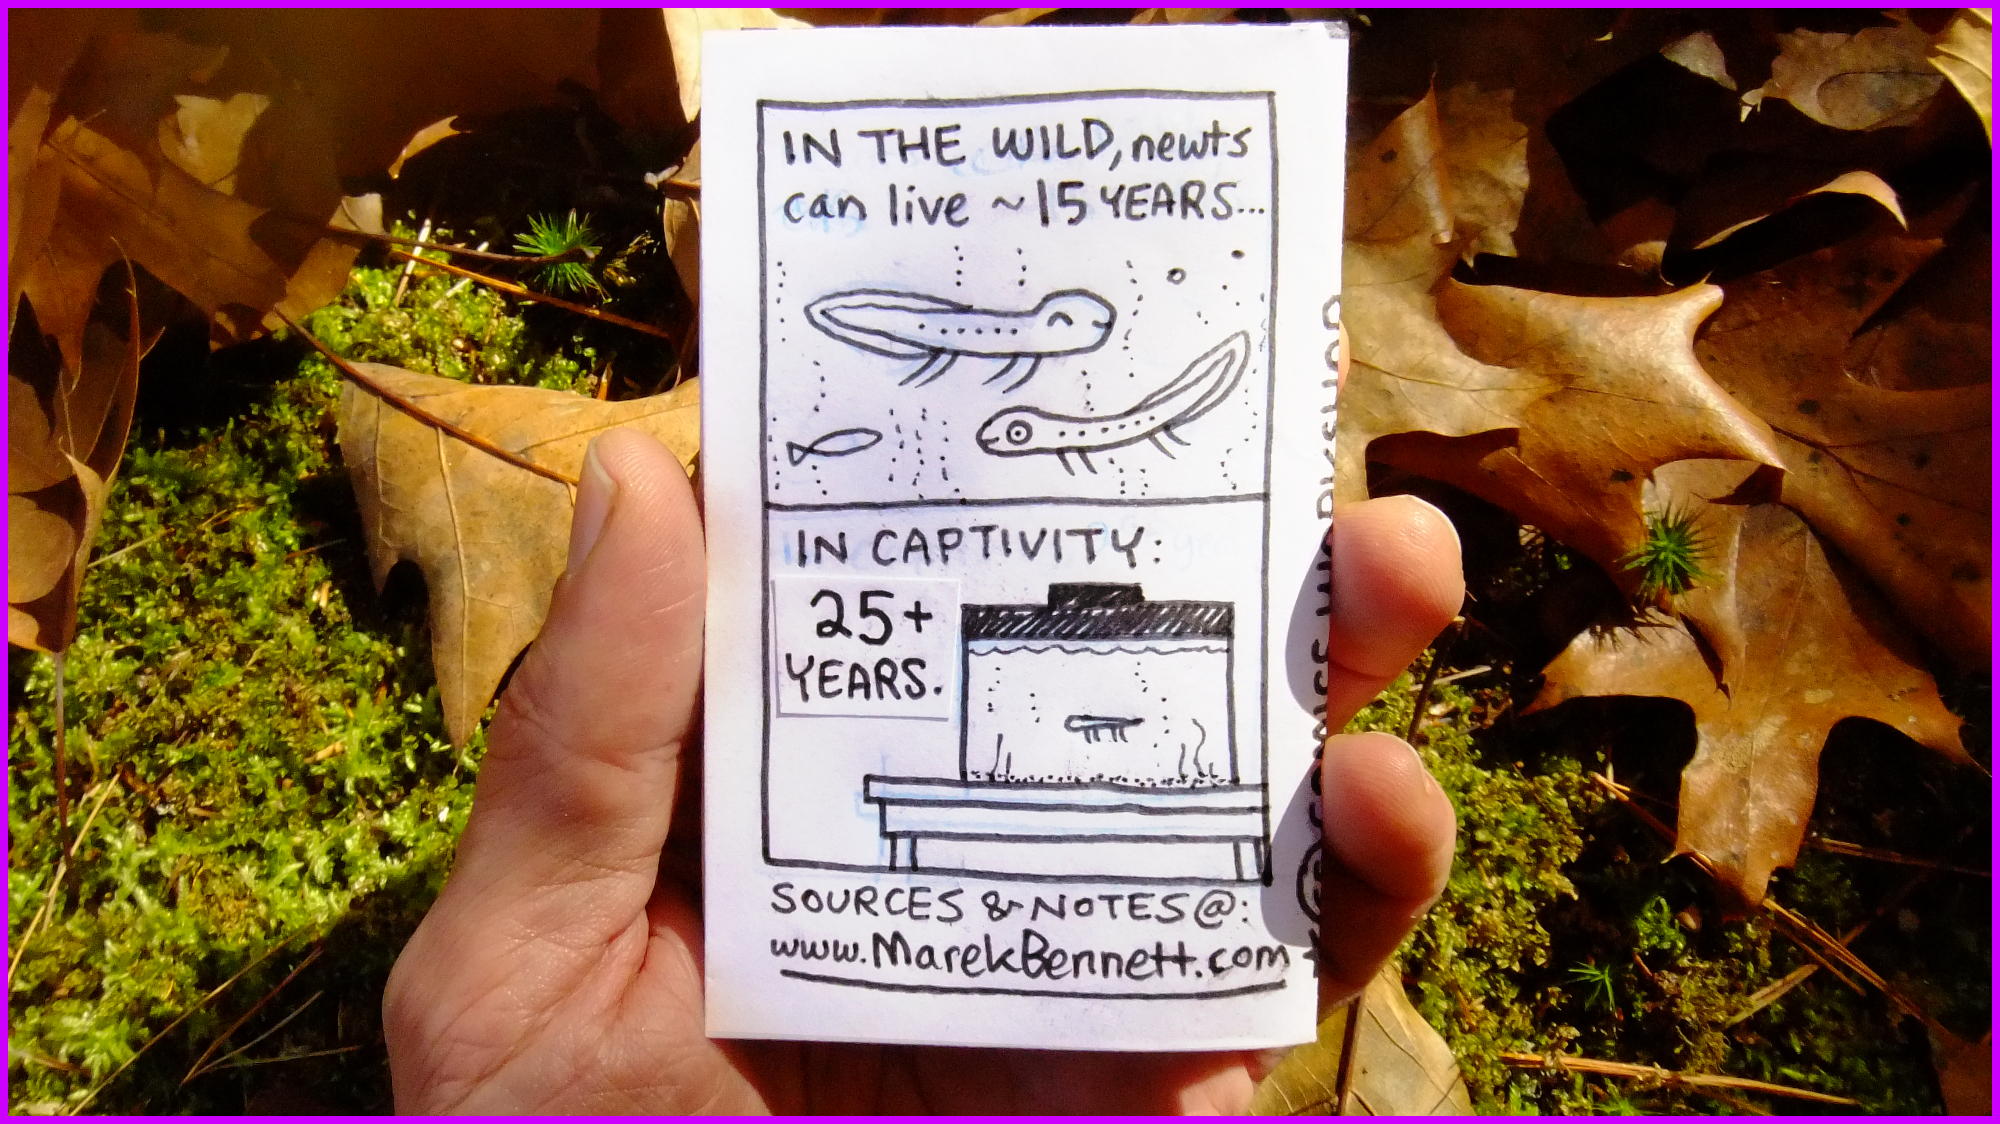 IN THE WILD, newts
can live ~15 YEARS...
IN CAPTIVITY:
25+
YEARS.
SOURCES & NOTES @:
www.MarekBennett.com
COMICS WORKSHOP